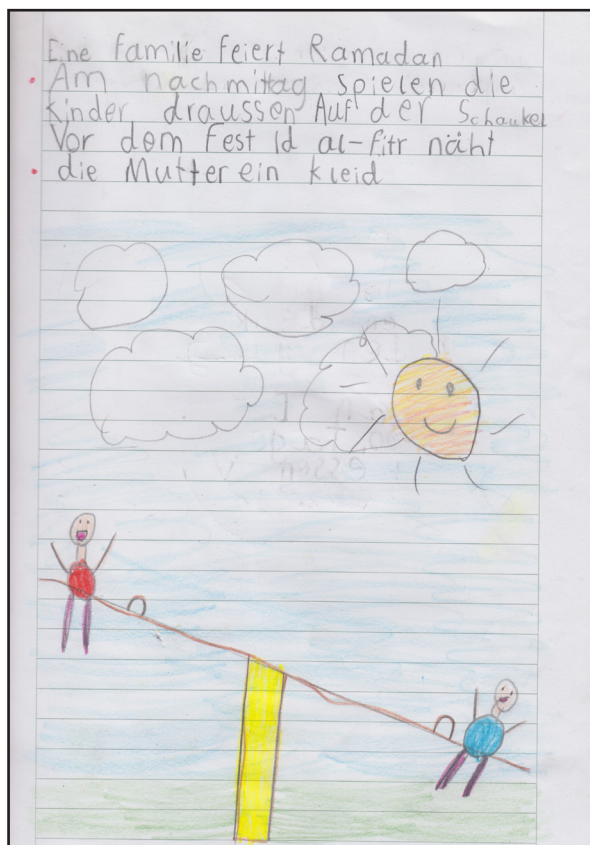 Eine Familie feiert Ramadan
Am nachmittag spielen die
kinder draussen Auf der Schaukel
Vor dem Fest Id al-fitr näht
die Mutter ein kleid